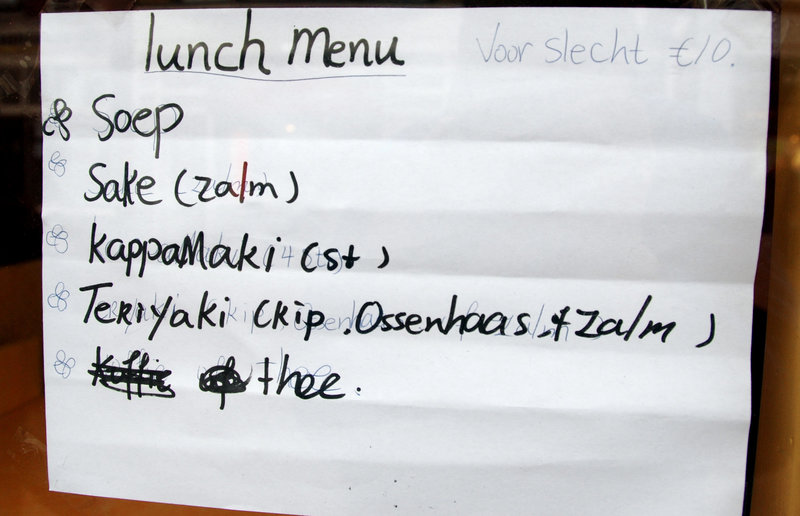 lunch Menu
Voor slecht €10.
Soep
Sake (zalm)
KappaMaki (st)
Teriyaki (Kip. Ossenhaas. + zalm)
thee.